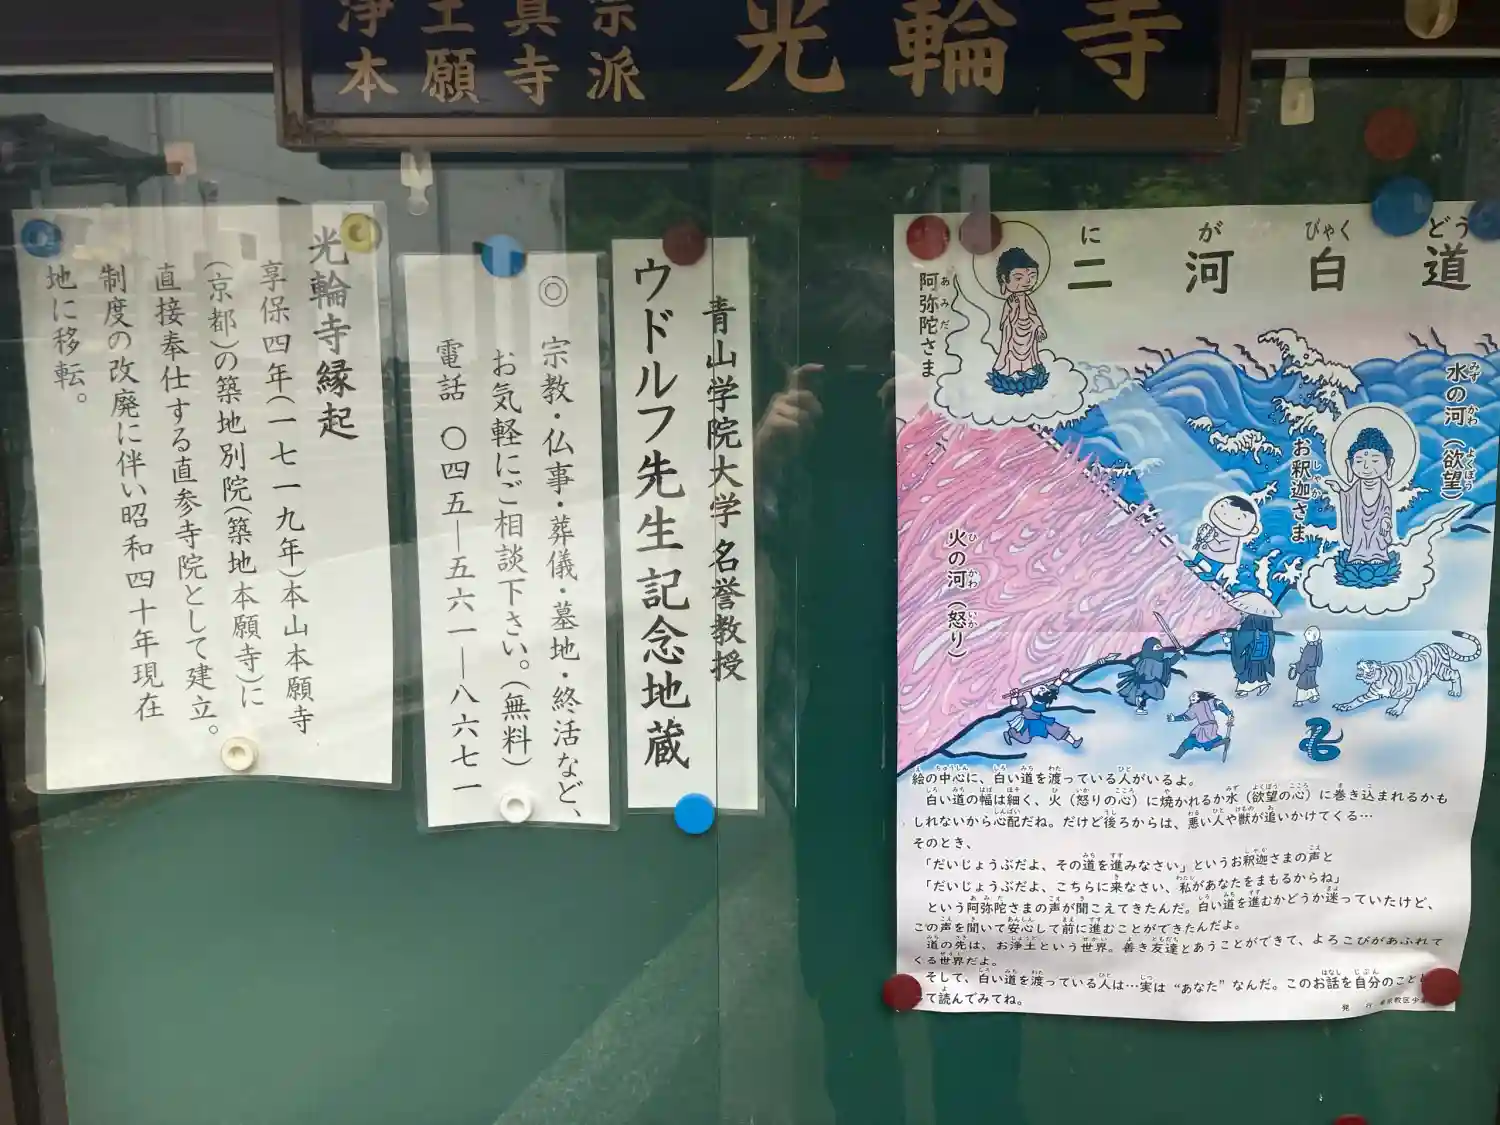 浄土真宗
本願寺派
光輪寺
光輪寺縁起
享保四年(一七一九年)本山本願寺
(京都)の築地別院(築地本願寺)に
直接奉仕する直参寺院として建立。
制度の改廃に伴い昭和四十年現在
地に移転。
◎ 宗教・仏事・葬儀・墓地・終活など、
お気軽にご相談下さい。(無料)
電話 〇四五―五六一―八六七一
青山学院大学 名誉教授
ウドルフ先生記念地蔵
に が びゃく どう
二 河 白 道
阿弥陀さま
あみだ
水の河(欲望)
みず かわ よくぼう
お釈迦さま
しゃか
火の河(怒り)
ひ かわ いか
絵の中心に、白い道を渡っている人がいるよ。
白い道の幅は細く、火(怒りの心)に焼かれるか水(欲望の心)に巻き込まれるかも
しれないから心配だね。だけど後ろからは、悪い人や獣が追いかけてくる…
そのとき、
「だいじょうぶだよ、その道を進みなさい」というお釈迦さまの声と
「だいじょうぶだよ、こちらに来なさい、私があなたをまもるからね」
という阿弥陀さまの声が聞こえてきたんだ。白い道を進むかどうか迷っていたけど、
この声を聞いて安心して前に進むことができたんだよ。
道の先は、お浄土という世界。善き友達とあうことができて、よろこびがあふれて
くる世界だよ。
そして、白い道を渡っている人は…実は“あなた”なんだ。このお話を自分のこと
て読んでみてね。
発 行